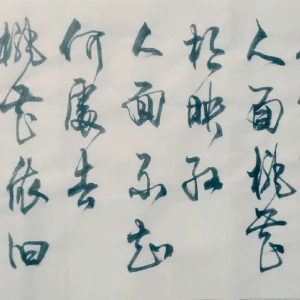 人面桃花
相映红
人面不知
何處去
桃花依旧